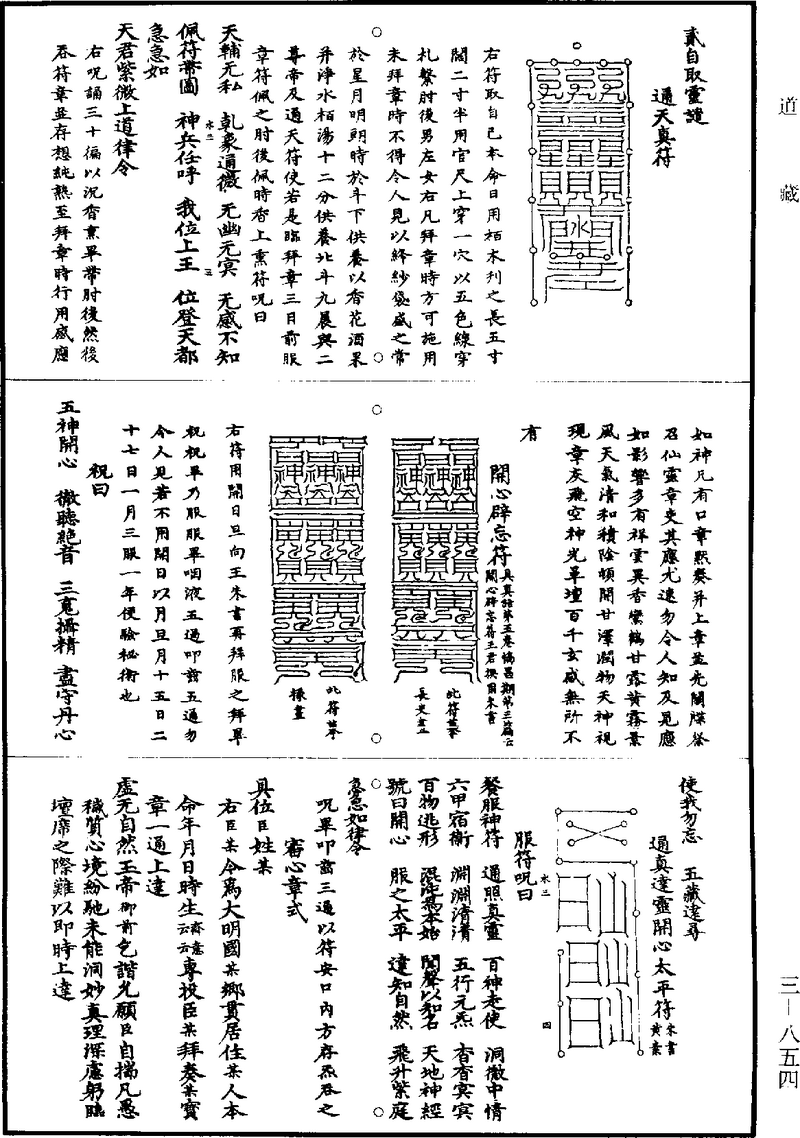 道藏
貳自取靈證
通天真符
右符取自己本命日用栢木刋之長五寸
闊二寸半用官尺上穿一穴以五色線穿
札繫肘後男左女右凡拜章時方可施用
未拜章時不得令人見以絳紗袋盛之常
於星月明朗時於斗下供養以香花酒果
并淨水栢湯十二分供養北斗九晨與二
尊帝及通天符使若是臨拜章三日前服
章符佩之肘後佩時香上熏符呪曰
天輔无私　乹象通微　无幽无冥　无感不知
佩符帶圖　神兵任呼　我位上王　位登天都
急急如
天君紫微上道律令
右呪誦三十徧以沉香熏畢帶肘後然後
吞符章並存想純熟至拜章時行用感應
如神凡有口章黙奏并上章並先關牒祭
召仙靈章吏其應尤速勿令人知及見應
如影響多有祥雲異香鸞鶴甘露黃霧景
風天氣清和積陰頓開甘澤潤物天神視
現章灰飛空神光罩壇百千玄感無所不
有
開心辟忘符
具真誥第五卷協昌期第三篇云
開心辟忘符王君撰用朱書
此符世本
長史畫
此符世本
掾畫
右符用開日旦向王朱書再拜服之拜畢
祝祝畢乃服服畢咽液五過叩齒五通勿
令人見若不用開日以月旦月十五日二
十七日一月三服一年便驗秘術也
祝曰
五神開心　徹聽絕音　三䰟攝精　盡守丹心
使我勿忘　五藏遠尋
通真達靈開心太平符
朱書
黃素
服符呪曰
餐服神符　通照真靈　百神走使　洞徹中情
六甲宿衛　淵淵清清　五行元炁　杳杳冥冥
百物逃形　混沌為本始　聞聲以知名　天地神經
號曰開心　服之太平　達知自然　飛升紫庭
急急如律令
呪畢叩齒三通以符安口內方存炁吞之
審心章式
具位臣姓某
右臣某今為大明國某鄉貫居住某人本
命年月日時生云云齋意云云專投臣某拜奏某寶
章一通上達
虛无自然玉帝御前乞諧允願臣自揣凡愚
穢質心境紛馳未能洞妙真理深慮躬臨
壇席之際難以即時上達
三—八五四